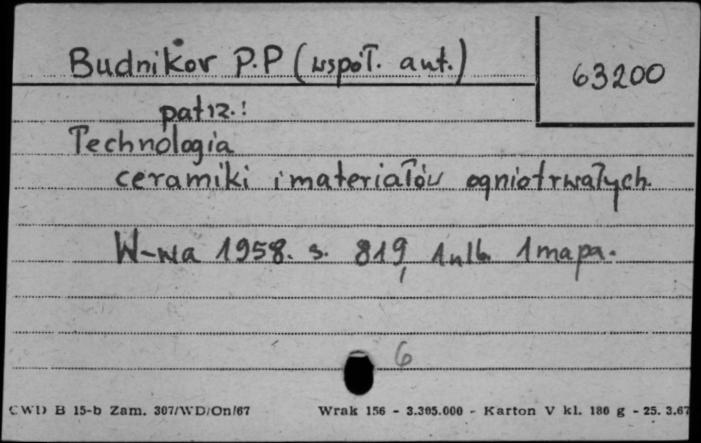 Budnikov P.P (współ. aut.)
63200
patrz.:
Technologia
ceramiki i materiałów ogniotrwałych.
W-wa 1958. s. 819, 1 nlb. 1 mapa.
6
CWD B 15-b Zam. 307/WD/On/67 Wrak 156 - 3.305.000 - Karton V kl. 180 g - 25. 3.67